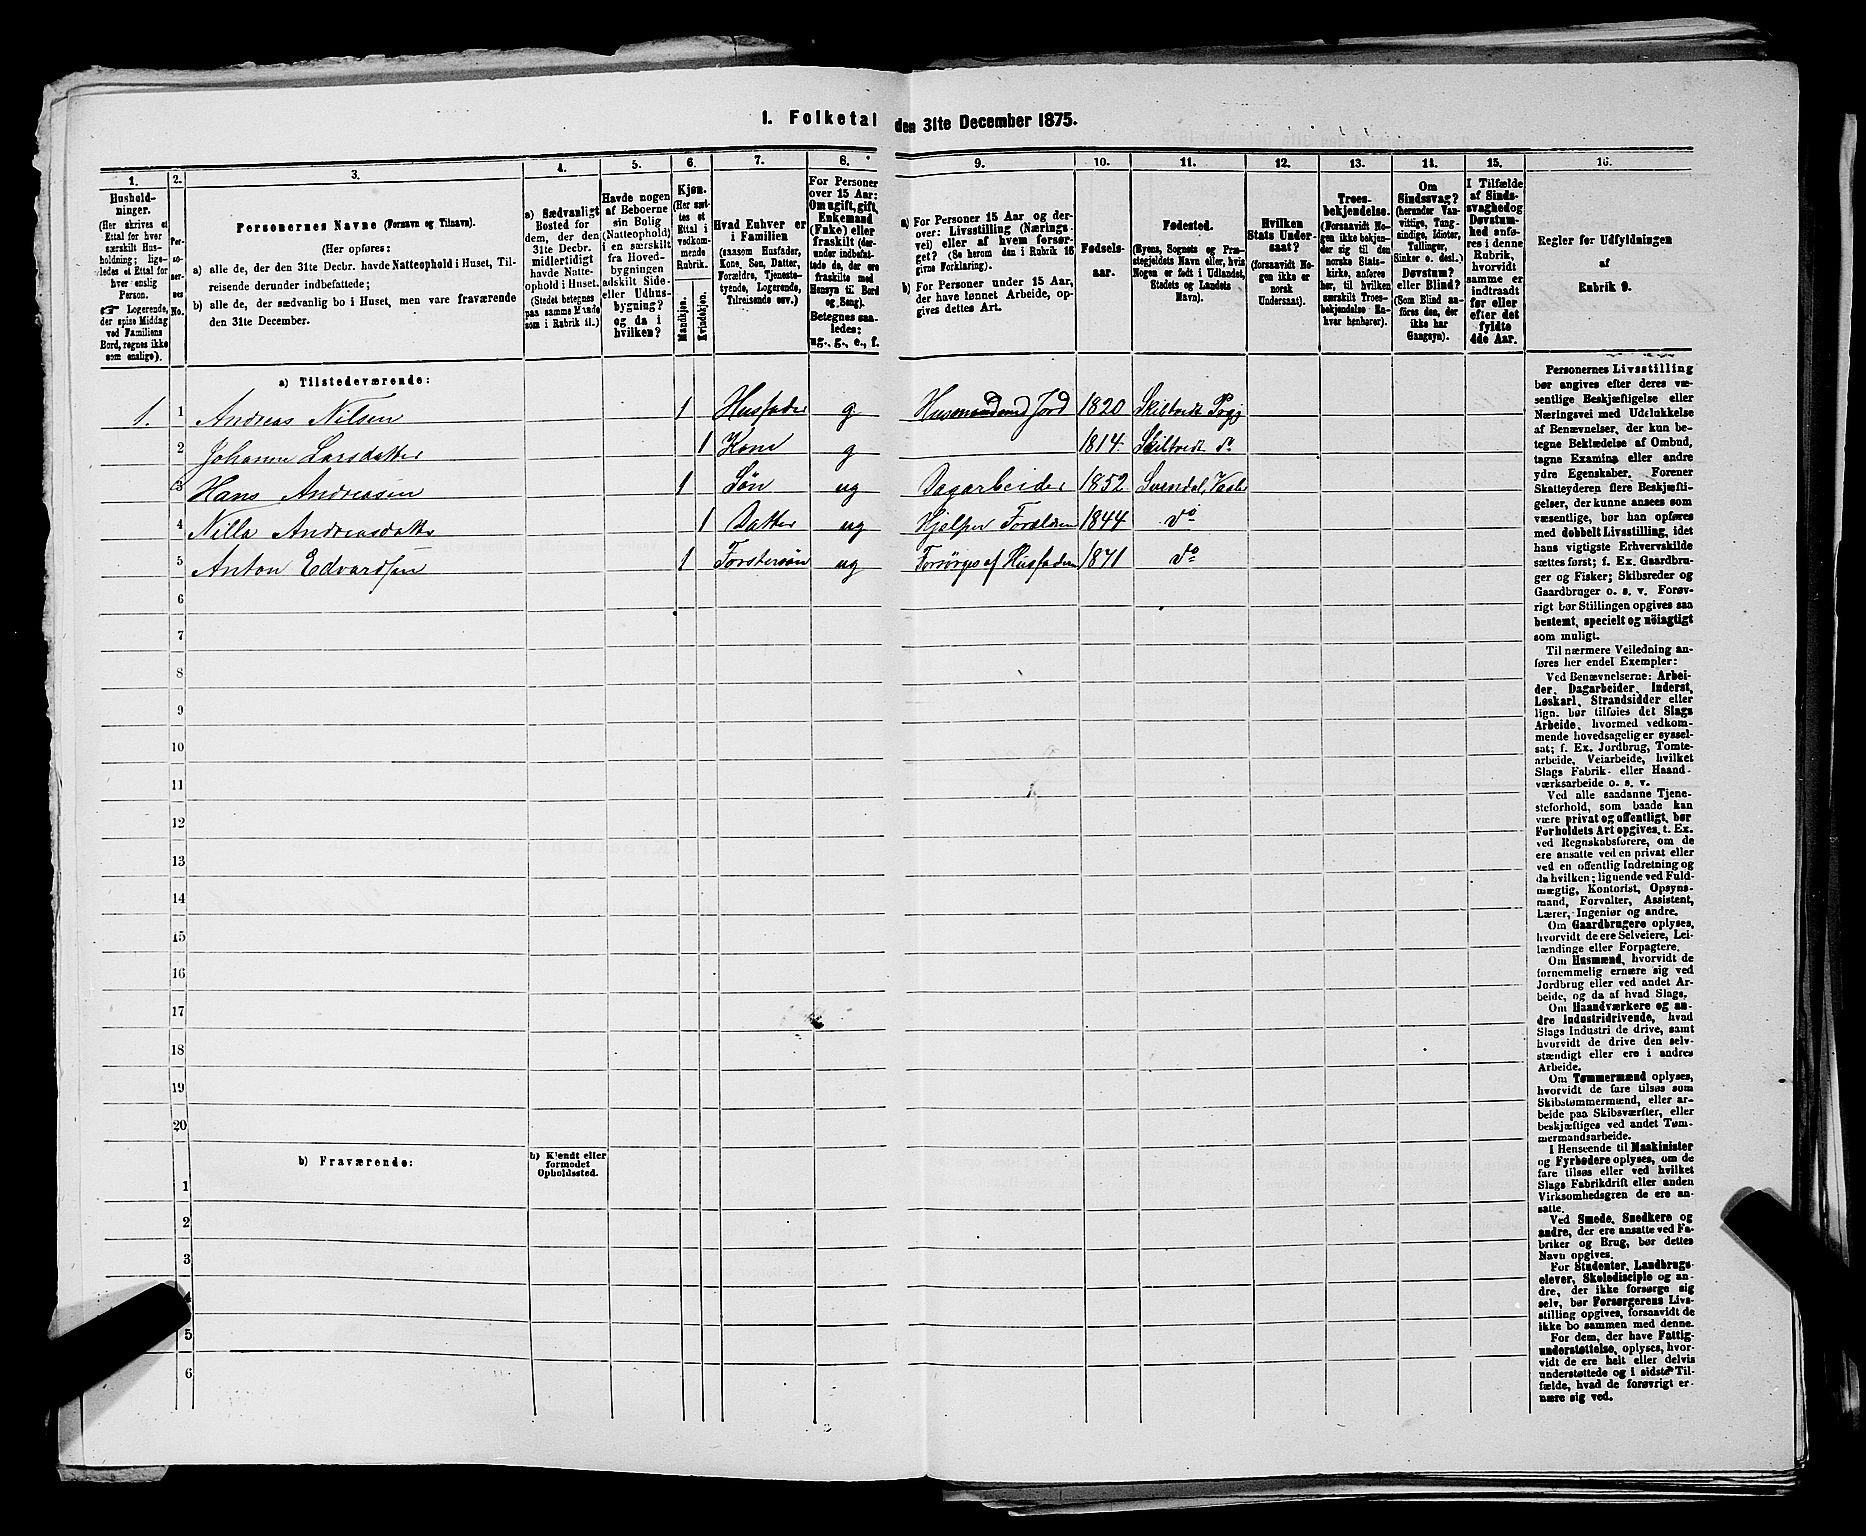 1. Folketal den 31te December 1875.
1.
2.
3.
4.
5.
6.
7.
8.
9.
10.
11.
12.
13.
14.
15.
16.
Hushold-
ninger.
(Her skrives et
Ettal for hver
særskilt Hus-
holdning; lige-
ledes et Ettal for
hver enslig
Person.
☛ Logerende,
der spise Middag
ved Familiens
Bord, regnes ikke
som enslige).
Per-
so-
ner-
nes
No.
Personernes Navne (Fornavn og Tilnavn).
(Her opføres:
a) alle de, der den 31te Decbr. havde Natteophold i Huset, Til-
reisende derunder indbefattede;
b) alle de, der sædvanlig bo i Huset, men vare fraværende
den 31te December.
a) Sædvanligt
Bosted for
dem, der den
31te Decbr.
midlertidigt
havde Natte-
ophold i Huset.
(Stedet betegnes
paa samme Maade
som i Rubrik 11.)
Havde nogen
af Beboerne
sin Bolig
(Natteophold)
i en særskilt
fra Hoved-
bygningen
adskilt Side-
eller Udhus-
bygning?
og da i
hvilken?
Kjøn.
(Her sæt-
tes et
Ettal i
vedkom-
mende
Rubrik.
Mandkjøn.
Kvindekjøn.
Hvad Enhver er
i Familien
(saasom Husfader,
Kone, Søn, Datter,
Forældre, Tjeneste-
tyende, Logerende,
Tilreisende osv.)
For Personer
over 15 Aar:
Om ugift, gift,
Enkemand
(Enke) eller
fraskilt (der-
under indbefat-
tede de, der ere
fraskilte med
Hensyn til Bord
og Seng).
Betegnes saa-
ledes:
ug., g., e., f.
a) For Personer 15 Aar og der-
over: Livsstilling (Nærings-
vei) eller af hvem forsør-
get? (Se herom den i Rubrik 16
givne Forklaring).
b) For Personer under 15 Aar,
der have lønnet Arbeide, op-
gives dettes Art.
Fødsels-
aar.
Fødested.
(Byens, Sognets og Præ-
stegjeldets Navn eller, hvis
Nogen er født i Udlandet,
Stedets og Landets
Navn).
Hvilken
Stats Under-
saat?
(forsaavidt No-
gen ikke er
norsk
Undersaat).
Troes-
bekjendelse.
(Forsaavidt No-
gen ikke bekjen-
der sig til den
norske Stats-
kirke, anføres
her, til hvilken
særskilt Troes-
bekjendelse En-
hver henhører).
Om
Sindssvag?
(herunder Van-
vittige, Tung-
sindige, Idioter,
Tullinger,
Sinker o. desl.)
Døvstum?
eller Blind?
(Som Blind an-
føres den, der
ikke har
Gangsyn).
I Tilfælde
af Sinds-
svaghed og
Døvstum-
hed anfø-
res i denne
Rubrik,
hvorvidt
samme er
indtraadt
før eller
efter det
fyldte
4de Aar.
Regler for Udfyldningen
af
Rubrik 9.
a) Tilstedeværende:
1. 1 Andreas Nilsen 1 Husfader g Husmand med Jord 1820 Skiltvedt Prgj
2 Johanne Larsdatter 1 Kone g 1814 Skiltvedt do
3 Hans Andreasen 1 Søn ug Dagarbeider 1852 Svendal,
4 Nilla Andreasdatter 1 Datter ug Hjelper Forældrene 1844 do
5 Anton Edvardsen 1 Forstersøn ug Forsørges af Husfaderen 1871 do
6
7
8
9
10
11
12
13
14
15
16
17
18
19
20
b) Fraværende:
b) Kjendt eller
formodet
Opholdssted.
1
2
3
4
5
6
Personernes Livsstilling
bør angives efter deres væ-
sentlige Beskjæftigelse eller
Næringsvei med Udelukkelse
af Benævnelser, der kun be-
tegne Beklædelse af Ombud,
tagne Examina eller andre
ydre Egenskaber. Forener
Skatteyderen flere Beskjæfti-
gelser, der kunne ansees som
væsentlige, bør han opføres
med dobbelt Livsstilling, idet
hans vigtigste Erhvervskilde
sættes først; f. Ex. Gaardbru-
ger og Fisker; Skibsreder og
Gaardbruger o. s. v. Forøv-
rigt bør Stillingen opgives saa
bestemt, specielt og nöiagtigt
som muligt.
Til nærmere Veiledning an-
føres her endel Exempler:
Ved Benævnelserne: Arbei-
der, Dagarbeider, Inderst,
Løskarl, Strandsidder eller
lign. bør tilføies det Slags
Arbeide, hvormed vedkom-
mende hovedsagelig er syssel-
sat; f. Ex. Jordbrug, Tomte-
arbeide, Veiarbeide, hvilket
Slags Fabrik- eller Haand-
værksarbeide o. s. v.
Ved alle saadanne Tjene-
steforhold, som baade kan
være privat og offentligt, bør
Forholdets Art opgives, t. Ex.
ved Regnskabsførere, om de
ere ansatte ved en privat eller
ved en offentlig Indretning og
da hvilken; lignende ved Fuld-
mægtig, Kontorist, Opsyns-
mand, Forvalter, Assistent,
Lærer, Ingeniør og andre.
Om Gaardbrugere oplyses,
hvorvidt de ere Selveiere, Lei-
lændinge eller Forpagtere.
Om Husmænd, hvorvidt de
fornemmelig ernære sig ved
Jordbrug eller ved andet Ar-
beide, og da af hvad Slags.
Om Haandværkere og an-
dre Industridrivende, hvad
Slags Industri de drive, samt
hvorvidt de drive den selv-
stændigt eller ere i andres
Arbeide.
Om Tømmermænd oplyses,
hvorvidt de fare tilsøs som
Skibstømmermænd, eller ar-
beide paa Skibsværfter, eller
beskjæftiges ved andet Tøm-
mermandsarbeide.
I Henseende til Maskinister
og Fyrbødere oplyses, om de
fare tilsøs eller ved hvilket
Slags Fabrikdrift eller anden
Virksomhedsgren de ere an-
satte.
Ved Smede, Snedkere og
andre, der ere ansatte ved Fa-
briker og Brug, bør dettes
Navn opgives.
For Studenter, Landbrugs-
elever, Skoledisciple og an-
dre, der ikke forsørge sig
selv, bør Forsørgerens Livs-
stilling opgives, forsaavidt de
ikke bo sammen med denne.
For dem, der have Fattig-
understøttelse, oplyses, hvor-
vidt de ere helt eller delvis
understøttede og i sidste Til-
fælde, hvad de forøvrigt er-
nære sig ved.